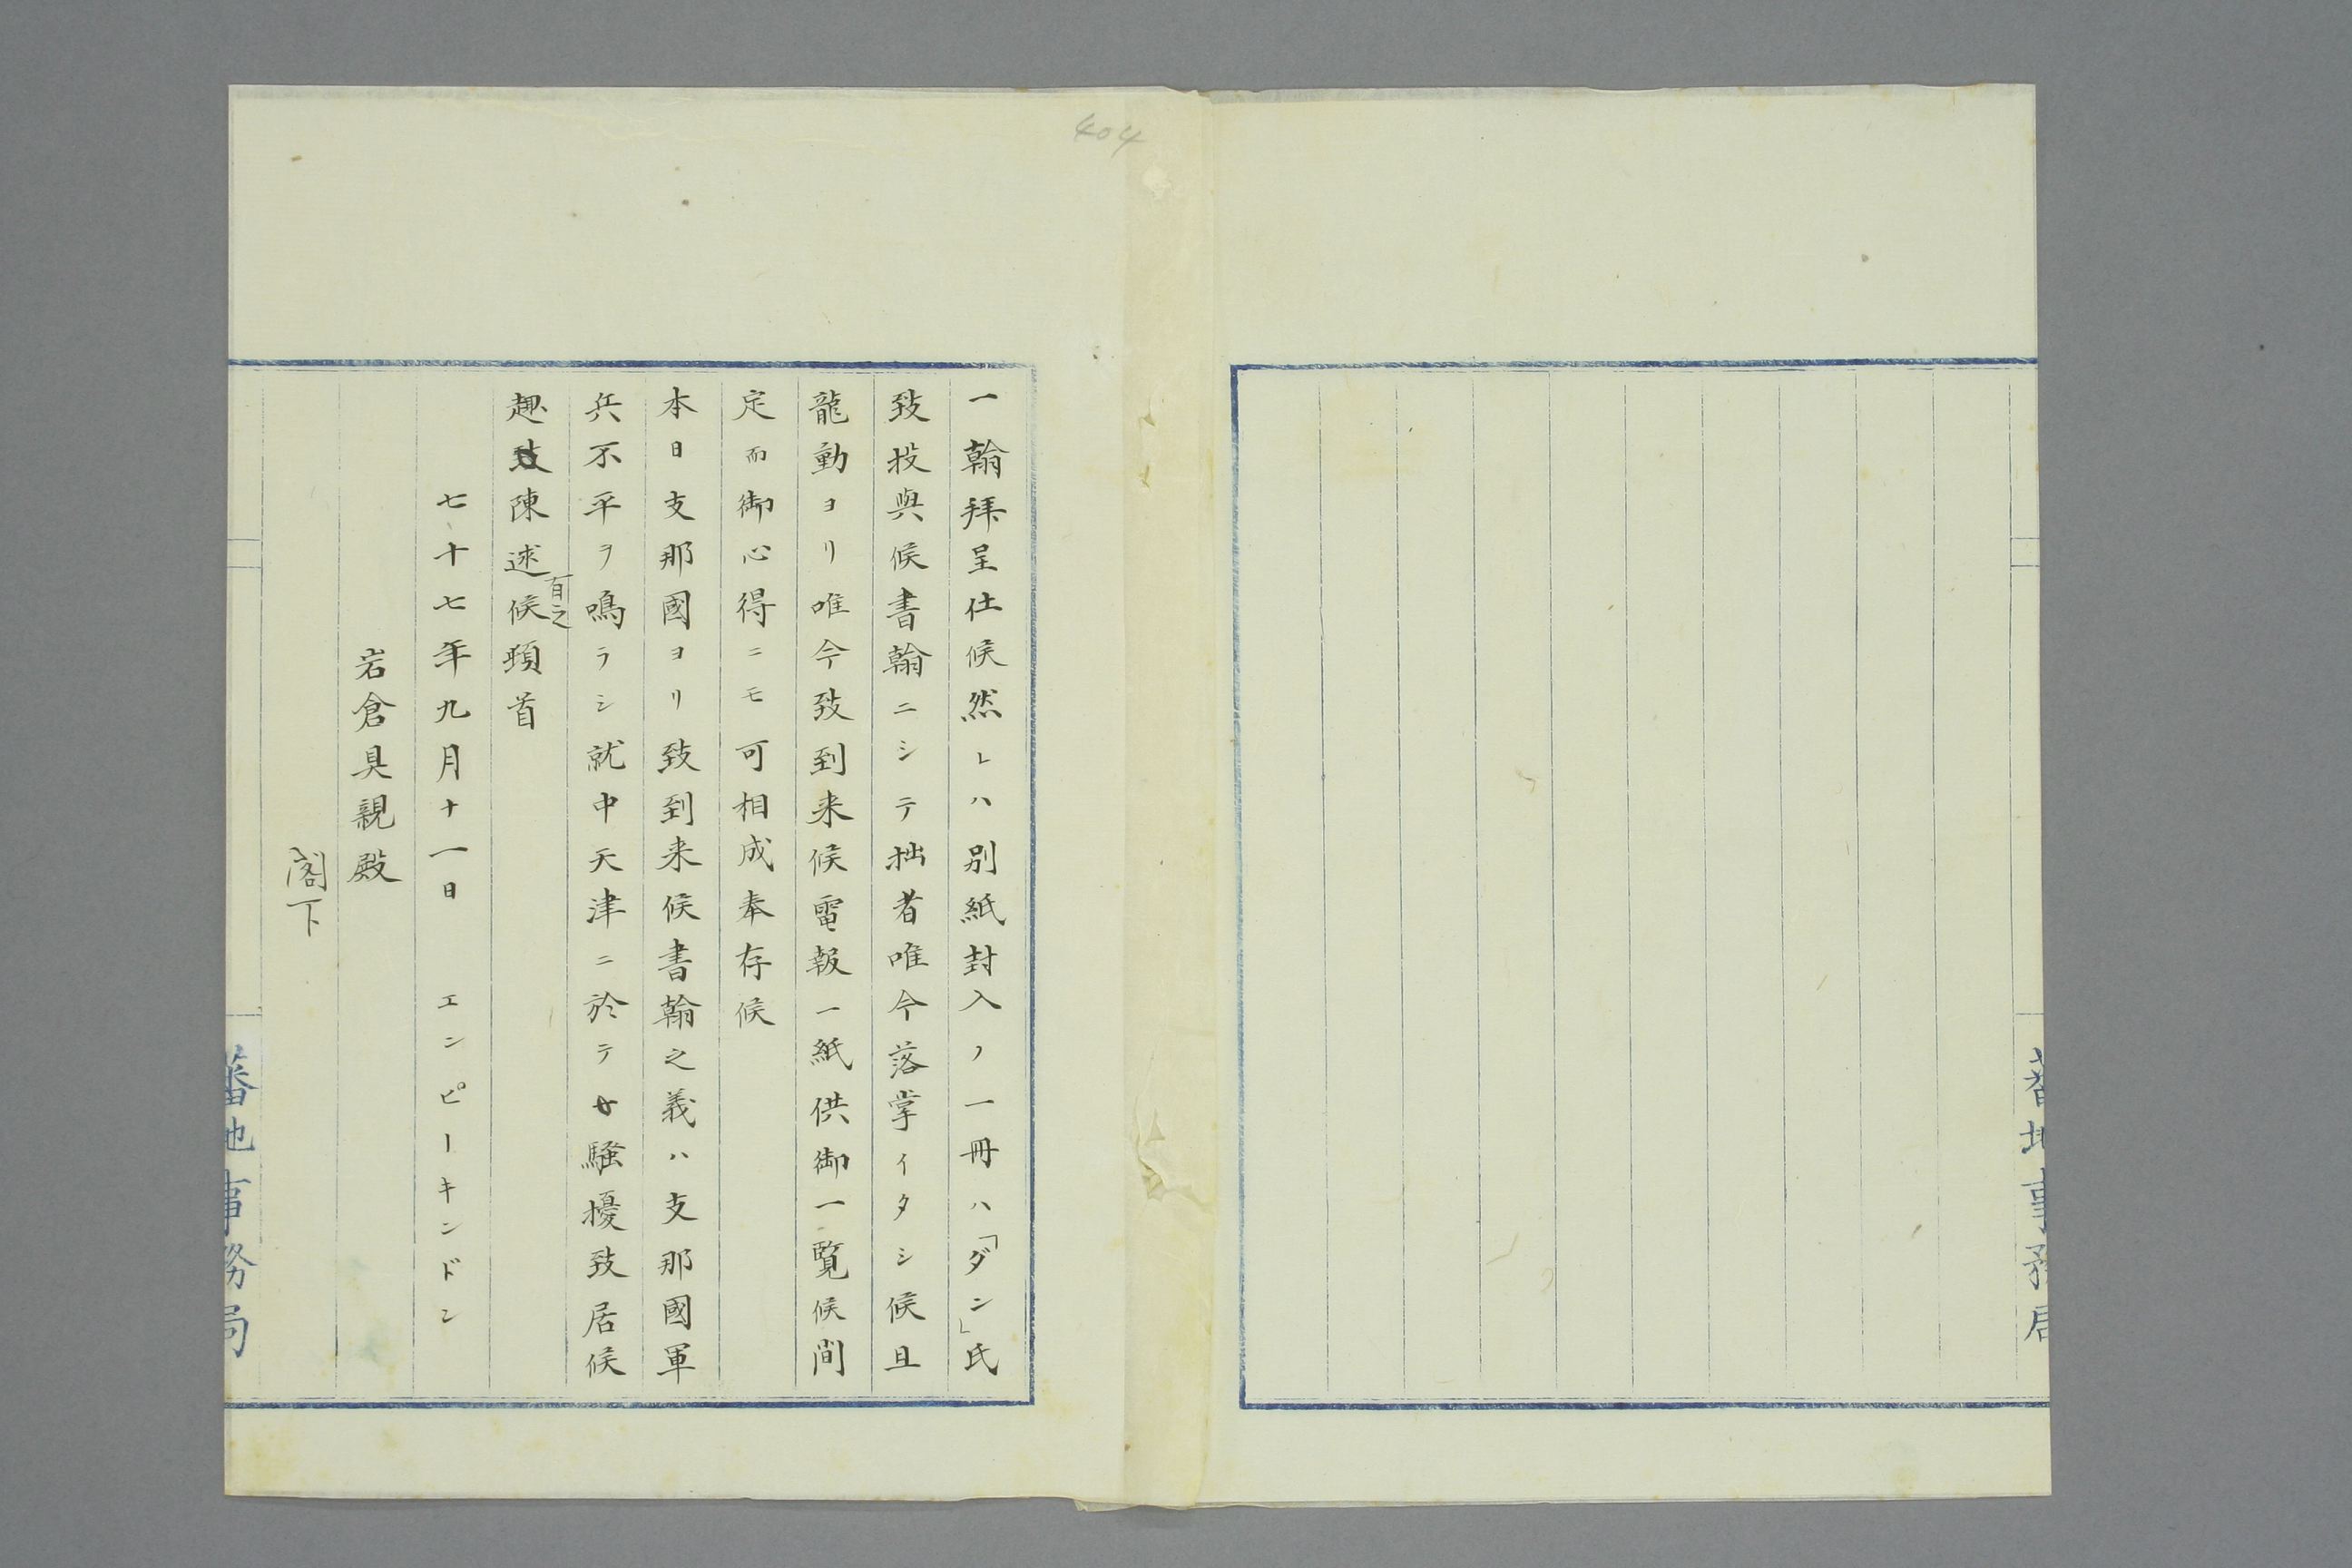 蕃地事務局
404
一翰拜呈仕候然レハ別紙封入ノ一冊ハ「ダン」氏
致投與候書翰ニシテ拙者唯今落掌イタシ候且
龍動ヨリ唯今致到来候電報一紙供御一覧候間
定而御心得ニモ可相成奉存候
本日支那國ヨリ致到来候書翰之義ハ支那國軍
兵不平ヲ鳴ラシ就中天津ニ於テ騒擾致居候
趣陳述候頓首
百之
七十七年九月十一日 エンピーキンドン
岩倉具親殿
閣下
蕃地事務局